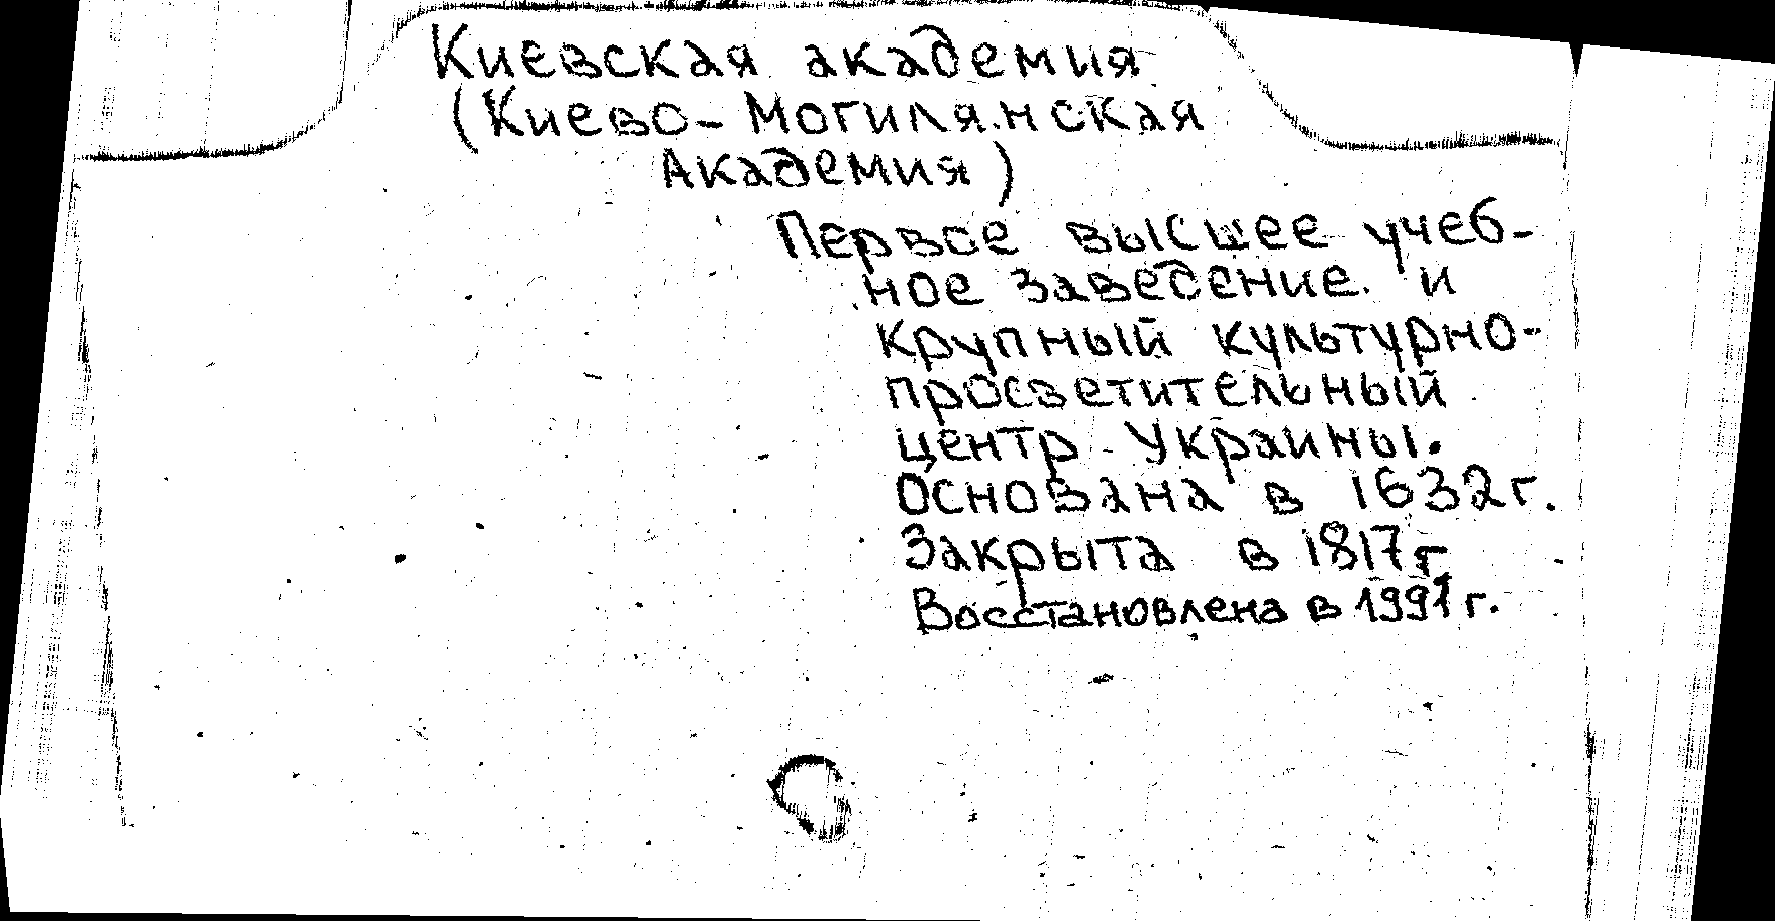 Киевская академия
(Киево-Могилянская
Академия)
Первое высшее учеб-
ное заведение и
крупный культурно-
просветительный
центр Украины.
Основана в 1632г.
Закрыта в 1817г.
Восстановлена в 1991г.